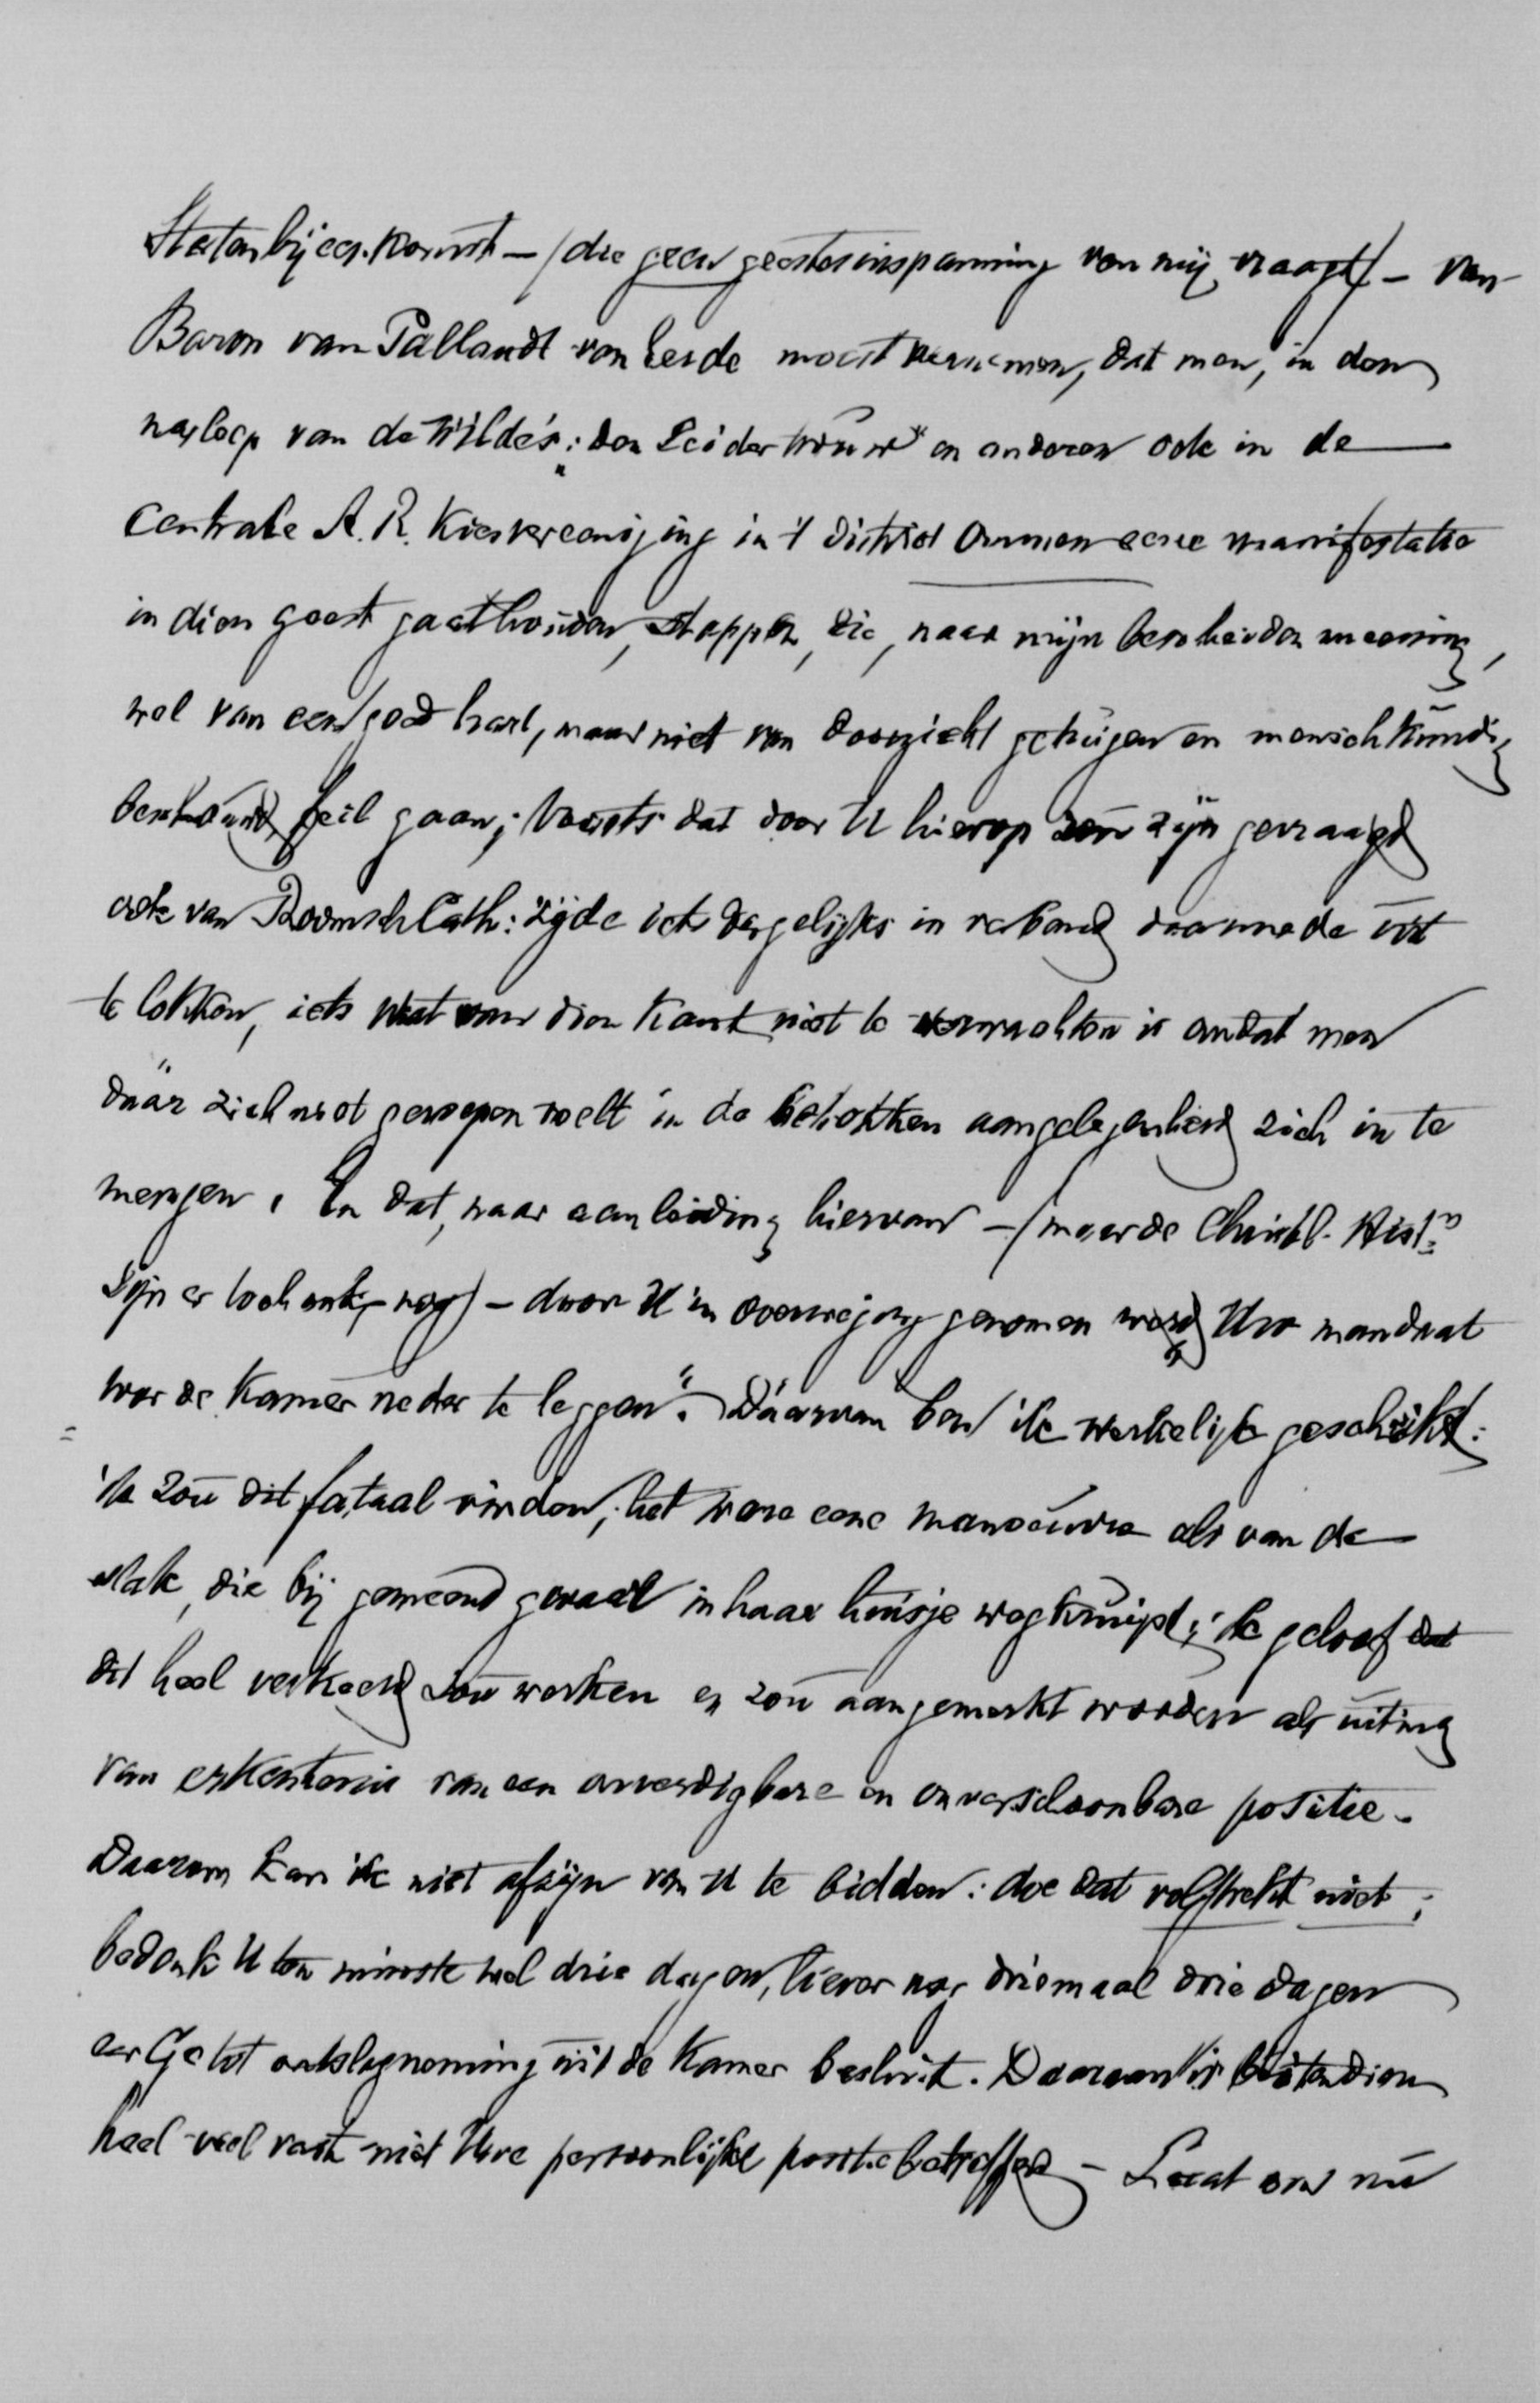 Statenbijeenkomst – (die geen geestesinspanning van mij vraagt) – van
Baron van Pallandt van Eerde moest vernemen, dat men, in den
nasloop van de Wilde's: „den Leider trouw" en anderen ook in de
Centrale A. R. Kiesvereeniging in 't district Ommen eene manifestatie
in dien geest gaat houden, stappen, die, naar mijn bescheiden meening,
wel van een goed hart, maar niet van doorzicht getuigen en menschkundig
beschouwd feil gaan; Voorts dat door U hierop zou zijn gevraagd
ook van Roomsch Cath: zijde iets dergelijks in verband daarmede uit
te lokken, iets wat van dien kant niet te verwachten is omdat men
dáár zich niet geroepen voelt in de betrokken aangelegenheid zich in te
mengen. En dat, naar aanleiding hiervan – (maar de Christl. Histn
zijn er toch ook nog) – door U in overweging genomen werd Uw mandaat
voor de Kamer neder te leggen". Dáárvan ben ik werkelijk geschrikt:
ik zou dit fataal vinden; het ware eene manoeuvre als van de
slak, die bij gemeend gevaar in haar huisje wegkruipt; ik geloof dat
dit heel verkeerd zou werken en zou aangemerkt worden als uiting
van erkentenis van een onverdigbare en onverschoonbare positie.
Daarom kan ik niet afzijn van U te bidden: doe dat volstrekt niet;
bedenk U ten minste wel drie dagen, liever nog driemaal drie dagen
eer Ge tot ontslagneming uit de Kamer besluit. Daaraan is buitendien
heel veel vast niet Uwe persoonlijke positie betreffend – Laat ons nu